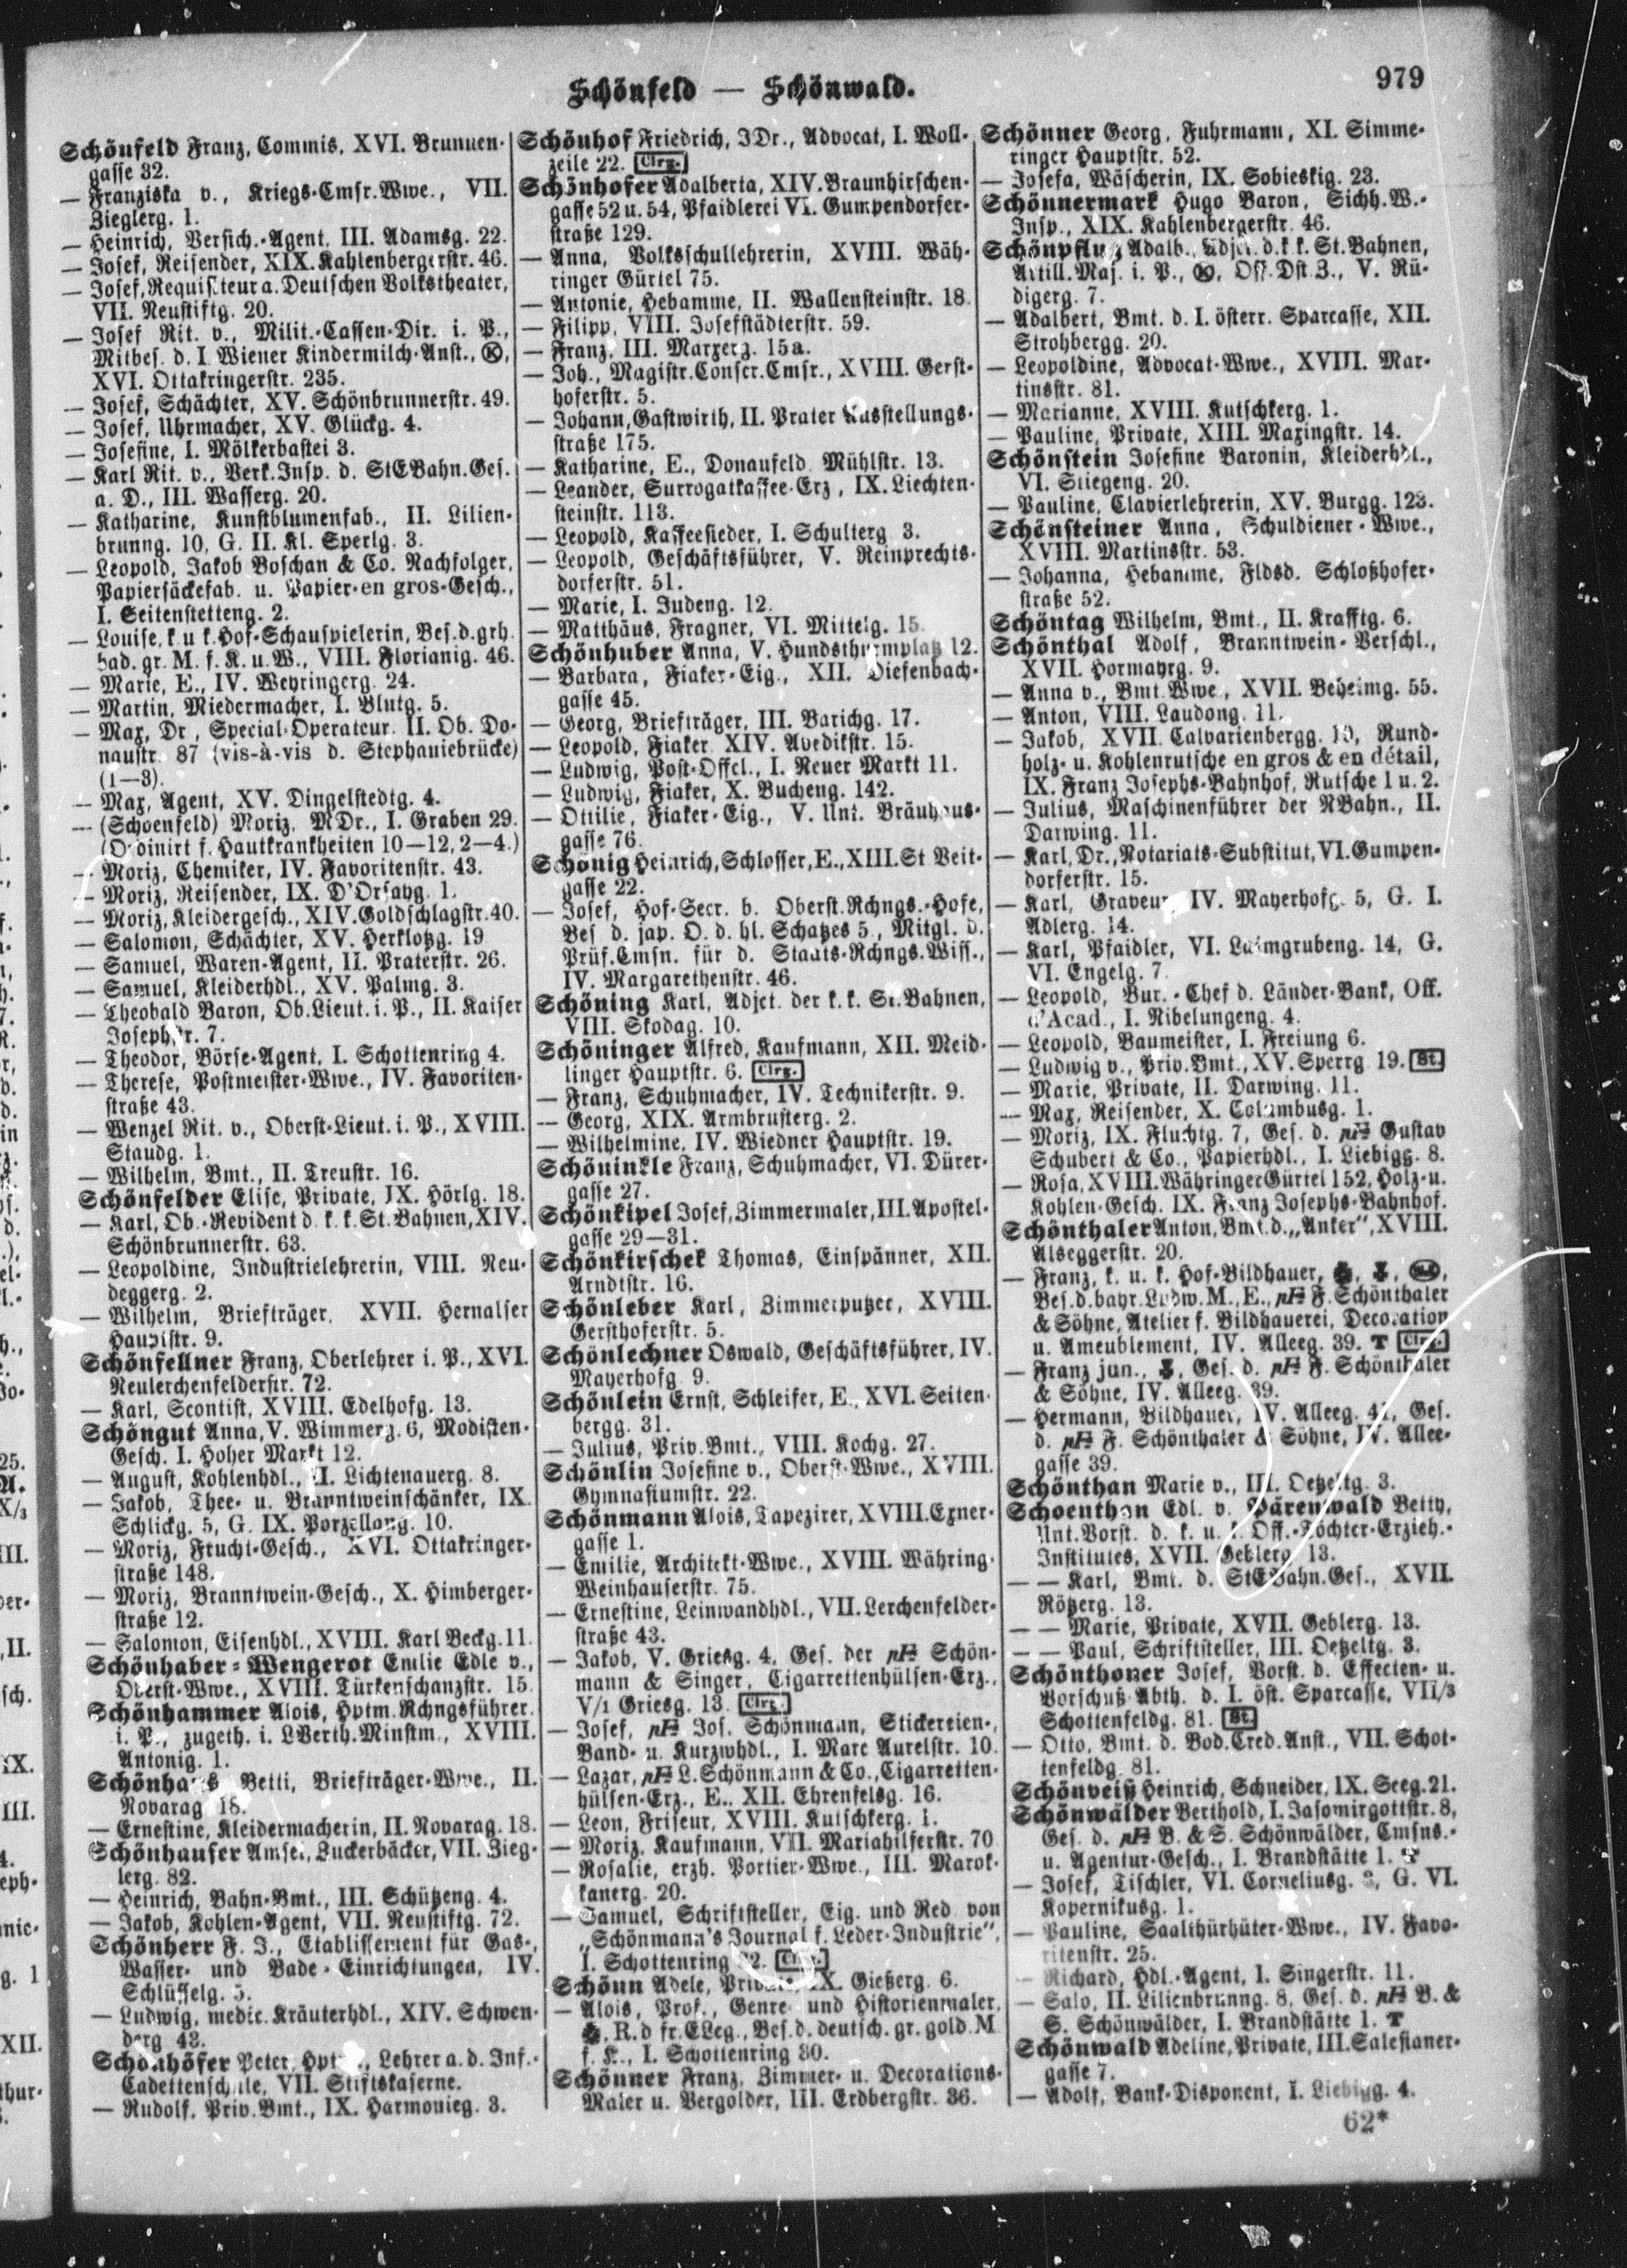 Schönfeld — Schönwald.
979
Schönfeld Franz, Commis, XVI. Brunnen-
gasse 32.
— Franziska v., Kriegs-Cmsr.Wwe., VII.
Zieglerg. 1.
— Heinrich, Versich.-Agent, III. Adamsg. 22.
— Josef, Reisender, XIX. Kahlenbergerstr. 46.
— Josef, Requisiteur a. Deutschen Volkstheater,
VII. Neustiftg. 20.
— Josef Rit. v., Milit.-Cassen-Dir. i. P.,
Mitbes. d. I. Wiener Kindermilch-Anst., Ⓚ,
XVI. Ottakringerstr. 235.
— Josef, Schächter, XV. Schönbrunnerstr. 49.
— Josef, Uhrmacher, XV. Glückg. 4.
— Josefine, I. Mölkerbastei 3.
— Karl Rit. v., Verk.Insp. d. StEBahn.Ges.
a. D., III. Wasserg. 20.
— Katharine, Kunstblumenfab., II. Lilien-
brunng. 10, G. II. Kl. Sperlg. 3.
— Leopold, Jakob Boschan & Co. Nachfolger,
Papiersäckefab. u. Papier-en gros-Gesch.,
I. Seitenstetteng. 2.
— Louise, k. u k. Hof-Schauspielerin, Bes. d. grh.
bad. gr. M. f. K. u. W., VIII. Florianig. 46.
— Marie, E., IV. Weyringerg. 24.
— Martin, Miedermacher, I. Blutg. 5.
— Max, Dr, Special-Operateur. II. Ob. Do-
naustr. 87 (vis-à-vis d. Stephaniebrücke)
(1—3).
— Max, Agent, XV. Dingelstedtg. 4.
— (Schoenfeld) Moriz, MDr., I. Graben 29.
(Ordinirt f. Hautkrankheiten 10—12, 2—4.)
— Moriz, Chemiker, IV. Favoritenstr. 43.
— Moriz, Reisender, IX. D'Orsayg. 1.
— Moriz, Kleidergesch., XIV. Goldschlagstr. 40.
— Salomon, Schächter, XV. Herklotzg. 19
— Samuel, Waren-Agent, II. Praterstr. 26.
— Samuel, Kleiderhdl., XV. Palmg. 3.
— Theobald Baron, Ob.Lieut. i. P., II. Kaiser
Josephstr. 7.
— Theodor, Börse-Agent, I. Schottenring 4.
— Therese, Postmeister-Wwe., IV. Favoriten-
straße 43.
— Wenzel Rit. v., Oberst-Lieut. i. P., XVIII.
Staudg. 1.
— Wilhelm, Bmt., II. Treustr. 16.
Schönfelder Elise, Private, IX. Hörlg. 18.
— Karl, Ob.-Revident d. k. k. St.Bahnen, XIV.
Schönbrunnerstr. 63.
— Leopoldine, Industrielehrerin, VIII. Neu-
deggerg. 2.
— Wilhelm, Briefträger, XVII. Hernalser
Hauptstr. 9.
Schönfellner Franz, Oberlehrer i. P., XVI.
Neulerchenfelderstr. 72.
— Karl, Scontist, XVIII. Edelhofg. 13.
Schöngut Anna, V. Wimmerg. 6, Modisten-
Gesch. I. Hoher Markt 12.
— August, Kohlenhdl., II. Lichtenauerg. 8.
— Jakob, Thee- u. Branntweinschänker, IX.
Schlickg. 5, G. IX. Porzellang. 10.
— Moriz, Frucht-Gesch., XVI. Ottakringer-
straße 148.
— Moriz, Branntwein-Gesch., X. Himberger-
straße 12.
— Salomon, Eisenhdl., XVIII. Karl Beckg. 11.
Schönhaber-Wengerot Emilie Edle v.,
Oberst-Wwe., XVIII. Türkenschanzstr. 15.
Schönhammer Alois, Hptm.Rchngsführer.
i. P., zugeth. i. LVerth.Minstm., XVIII.
Antonig. 1.
Schönhals Betti, Briefträger-Wwe., II.
Novarag 18.
— Ernestine, Kleidermacherin, II. Novarag. 18.
Schönhauser Amsel, Zuckerbäcker, VII. Zieg-
lerg. 82.
— Heinrich, Bahn-Bmt., III. Schützeng. 4.
— Jakob, Kohlen-Agent, VII. Neustiftg. 72.
Schönherr F. J., Etablissement für Gas-,
Wasser- und Bade-Einrichtungen, IV.
Schlüsselg. 5.
— Ludwig, medic. Kräuterhdl., XIV. Schwen-
derg 43.
Schönhöfer Peter, Lehrer a. d. Inf.-
Cadettenschule, VII. Stiftskaserne.
— Rudolf, Priv.Bmt., IX. Harmonieg. 3.
Schönhof Friedrich, JDr., Advocat, I. Woll-
zeile 22. Clrg.
Schönhofer Adalberta, XIV. Braunhirschen-
gasse 52 u. 54, Pfaidlerei VI. Gumpendorfer-
straße 129.
— Anna, Volksschullehrerin, XVIII. Wäh-
ringer Gürtel 75.
— Antonie, Hebamme, II. Wallensteinstr. 18.
— Filipp, VIII. Josefstädterstr. 59.
— Franz, III. Marxerg. 15a.
— Joh., Magistr.Conscr.Cmsr., XVIII. Gerst-
hoferstr. 5.
— Johann, Gastwirth, II. Prater Ausstellungs-
straße 175.
— Katharine, E., Donaufeld. Mühlstr. 13.
— Leander, Surrogatkaffee-Erz, IX. Liechten-
steinstr. 113.
— Leopold, Kaffeesieder, I. Schulerg 3.
— Leopold, Geschäftsführer, V. Reinprechts-
dorferstr. 51.
— Marie, I. Judeng. 12.
— Matthäus, Fragner, VI. Mittelg. 15.
Schönhuber Anna, V. Hundsthurmplatz 12.
— Barbara, Fiaker-Eig., XII. Diefenbach-
gasse 45.
— Georg, Briefträger, III. Barichg. 17.
— Leopold, Fiaker XIV. Avedikstr. 15.
— Ludwig, Post-Offcl., I. Neuer Markt 11.
— Ludwig, Fiaker, X. Bucheng. 142.
— Ottilie, Fiaker-Eig., V. Unt. Bräuhaus-
gasse 76.
Schönig Heinrich, Schlosser, E., XIII. St Veit-
gasse 22.
— Josef, Hof-Secr. b. Oberst.Rchngs.-Hofe,
Bes d. jap. O. d. hl. Schatzes 5, Mitgl. d.
Prüf.Cmsn. für d. Staats-Rchngs.Wiss.,
IV. Margarethenstr. 46.
Schöning Karl, Adjct. der k. k. St.Bahnen,
VIII. Skodag. 10.
Schöninger Alfred, Kaufmann, XII. Meid-
linger Hauptstr. 6. Clrg.
— Franz, Schuhmacher, IV. Technikerstr. 9.
— Georg, XIX. Armbrusterg. 2.
— Wilhelmine, IV. Wiedner Hauptstr. 19.
Schöninkle Franz, Schuhmacher, VI. Dürer-
gasse 27.
Schönkipel Josef, Zimmermaler, III. Apostel-
gasse 29—31.
Schönkirschek Thomas, Einspänner, XII.
Arndtstr. 16.
Schönleber Karl, Zimmerputzer, XVIII.
Gersthoferstr. 5.
Schönlechner Oswald, Geschäftsführer, IV.
Mayerhofg 9.
Schönlein Ernst, Schleifer, E., XVI. Seiten-
bergg. 31.
— Julius, Priv.Bmt., VIII. Kochg. 27.
Schönlin Josefine v., Oberst-Wwe., XVIII.
Gymnasiumstr. 22.
Schönmann Alois, Tapezirer, XVIII. Exner-
gasse 1.
— Emilie, Architekt-Wwe., XVIII. Währing-
Weinhauserstr. 75.
— Ernestine, Leinwandhdl., VII. Lerchenfelder-
straße 43.
— Jakob, V. Griesg. 4, Ges. der pH Schön-
mann & Singer, Cigarrettenhülsen-Erz.,
V/1 Griesg. 13. Clrg.
— Josef, pH Jos. Schönmann, Stickereien-,
Band- u. Kurzwhdl., I. Marc Aurelstr. 10.
— Lazar, pH L. Schönmann & Co., Cigarretten-
hülsen-Erz., E., XII. Ehrenfelsg. 16.
— Leon, Friseur, XVIII. Kutschkerg. 1.
— Moriz, Kaufmann, VII. Mariahilferstr. 70
— Rosalie, erzh. Portier-Wwe., III. Marok-
kanerg. 20.
— Samuel, Schriftsteller, Eig. und Red. von
„Schönmann's Journal f. Leder-Industrie",
I. Schottenring Clrg.
Schönn Adele, Private, IX. Gießerg. 6.
— Alois, Prof., Genre- und Historienmaler,
R. d fr. ELeg., Bes. d. deutsch. gr. gold. M
f. K., I. Schottenring 30.
Schönner Franz, Zimmer- u. Decorations-
Maler u. Vergolder, III. Erdbergstr. 36.
Schönner Georg, Fuhrmann, XI. Simme-
ringer Hauptstr. 52.
— Josefa, Wäscherin, IX. Sobieskig. 23.
Schönnermark Hugo Baron, Sichh.W.-
Insp., XIX. Kahlenbergerstr. 46.
Schönpflug Adalb., Adjct. d. k. k. St.Bahnen,
Artill.Maj. i. P., Ⓚ, Off. Dst 3., V. Rü-
digerg. 7.
— Adalbert, Bmt. d. I. österr. Sparcasse, XII.
Strohbergg. 20.
— Leopoldine, Advocat-Wwe., XVIII. Mar-
tinsstr. 81.
— Marianne, XVIII. Kutschkerg. 1.
— Pauline, Private, XIII. Maxingstr. 14.
Schönstein Josefine Baronin, Kleiderhdl.,
VI. Stiegeng. 20.
— Pauline, Clavierlehrerin, XV. Burgg. 123.
Schönsteiner Anna, Schuldiener-Wwe.,
XVIII. Martinsstr. 53.
— Johanna, Hebamme, Fldsd. Schloßhofer-
straße 52.
Schöntag Wilhelm, Bmt., II. Krafftg. 6.
Schönthal Adolf, Branntwein-Verschl.,
XVII. Hormayrg. 9.
— Anna v., Bmt.Wwe, XVII. Beheimg. 55.
— Anton, VIII. Laudong. 11.
— Jakob, XVII. Calvarienbergg. 10, Rund-
holz- u. Kohlenrutsche en gros & en détail,
IX. Franz Josephs-Bahnhof, Rutsche 1 u. 2.
— Julius, Maschinenführer der NBahn., II.
Darwing. 11.
— Karl, Dr., Notariats-Substitut, VI. Gumpen-
dorferstr. 15.
— Karl, Graveur, IV. Mayerhofg. 5, G. I.
Adlerg. 14.
— Karl, Pfaidler, VI. Laimgrubeng. 14, G.
VI. Engelg. 7.
— Leopold, Bur.-Chef d. Länder-Bank, Off.
d'Acad., I. Nibelungeng. 4.
— Leopold, Baumeister, I. Freiung 6.
— Ludwig v., Priv.Bmt., XV. Sperrg. 19. St.
— Marie, Private, II. Darwing. 11.
— Max, Reisender, X. Columbusg. 1.
— Moriz, IX. Fluchtg. 7, Ges. d. pH Gustav
Schubert & Co., Papierhdl., I. Liebigg. 8.
— Rosa, XVIII. Währinger Gürtel 152, Holz- u.
Kohlen-Gesch. IX. Franz Josephs-Bahnhof.
Schönthaler Anton, Bmt. d. „Anker", XVIII.
Alseggerstr. 20.
— Franz, k. u. k. Hof-Bildhauer,
Bes. d. bayr. Ludw. M., E., pH F. Schönthaler
& Söhne, Atelier f. Bildhauerei, Decoration
u. Ameublement, IV. Alleeg. 39. T Clrg.
— Franz jun., Ges. d. pH F. Schönthaler
& Söhne, IV. Alleeg. 39.
— Hermann, Bildhauer, IV. Alleeg. 41, Ges.
d. pH F. Schönthaler & Söhne, IV. Allee-
gasse 39.
Schönthan Marie v., III. Oetzeltg. 3.
Schoenthan Edl. v. Pärenwald Betty,
Unt.Vorst. d. k. u. k. Off.-Töchter-Erzieh.-
Institutes, XVII. Geblerg 13.
— — Karl, Bmt. d. StEBahn.Ges., XVII.
Rötzerg. 13.
— — Marie, Private, XVII. Geblerg. 13.
— — Paul, Schriftsteller, III. Oetzeltg. 3.
Schönthoner Josef, Vorst. d. Effecten- u.
Vorschuß-Abth. d. I. öst. Sparcasse, VII/3
Schottenfeldg. 81. St.
— Otto, Bmt. d. Bod.Cred.Anst., VII. Schot-
tenfeldg. 81.
Schönveiß Heinrich, Schneider, IX. Seeg. 21.
Schönwälder Berthold, I. Jasomirgottstr. 8,
Ges. d. pH B. & S. Schönwälder, Cmsns.-
u. Agentur-Gesch., I. Brandstätte 1. T
— Josef, Tischler, VI. Corneliusg. 3, G. VI.
Kopernikusg. 1.
— Pauline, Saalthürhüter-Wwe., IV. Favo-
ritenstr. 25.
— Richard, Hdl.-Agent, I. Singerstr. 11.
— Salo, II. Lilienbrunng. 8, Ges. d. pH B. &
S. Schönwälder, I. Brandstätte 1. T
Schönwald Adeline, Private, III. Salesianer-
gasse 7.
— Adolf, Bank-Disponent, I. Liebigg. 4.
62*